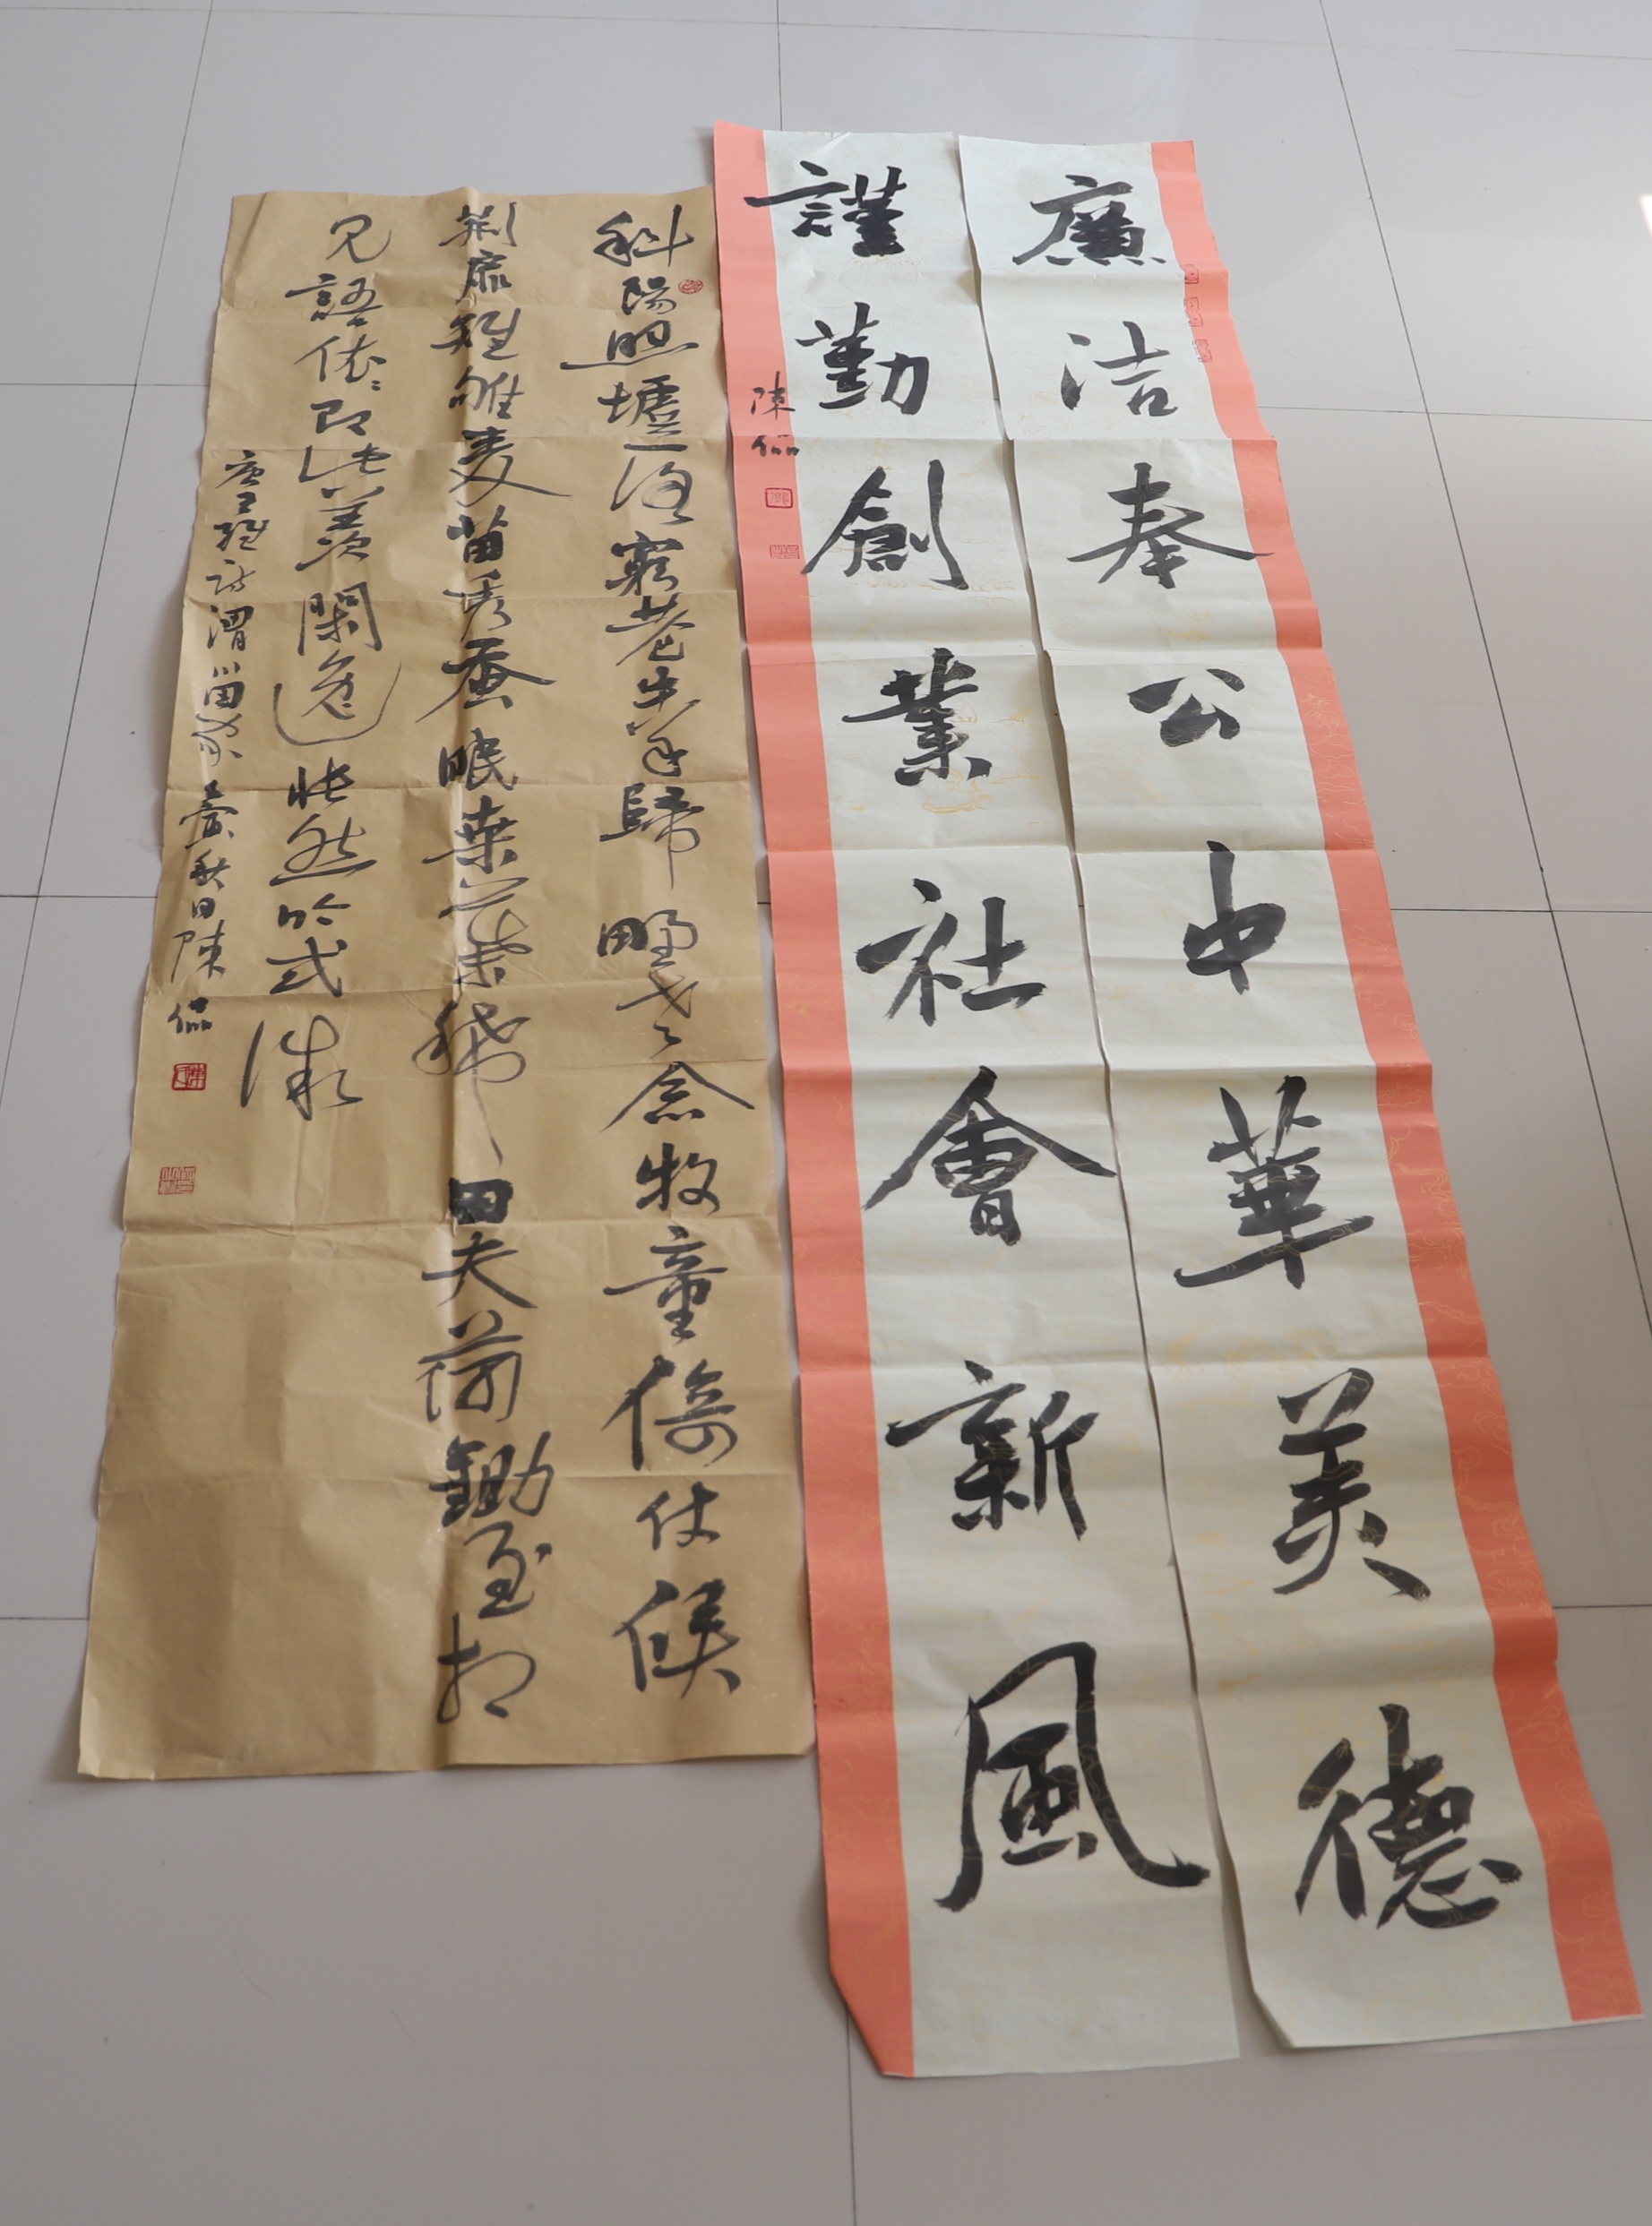 廉洁奉公中華美德
謹勤創業社會新風
陳
斜陽照墟落窮巷牛羊歸野老念牧童倚仗候
荊扉雉雊麥苗秀蚕眠桑葉稀田夫荷鋤至相
見語依依即此羨閑逸悵然吟式微
唐王維詩渭川田家 秋日陳